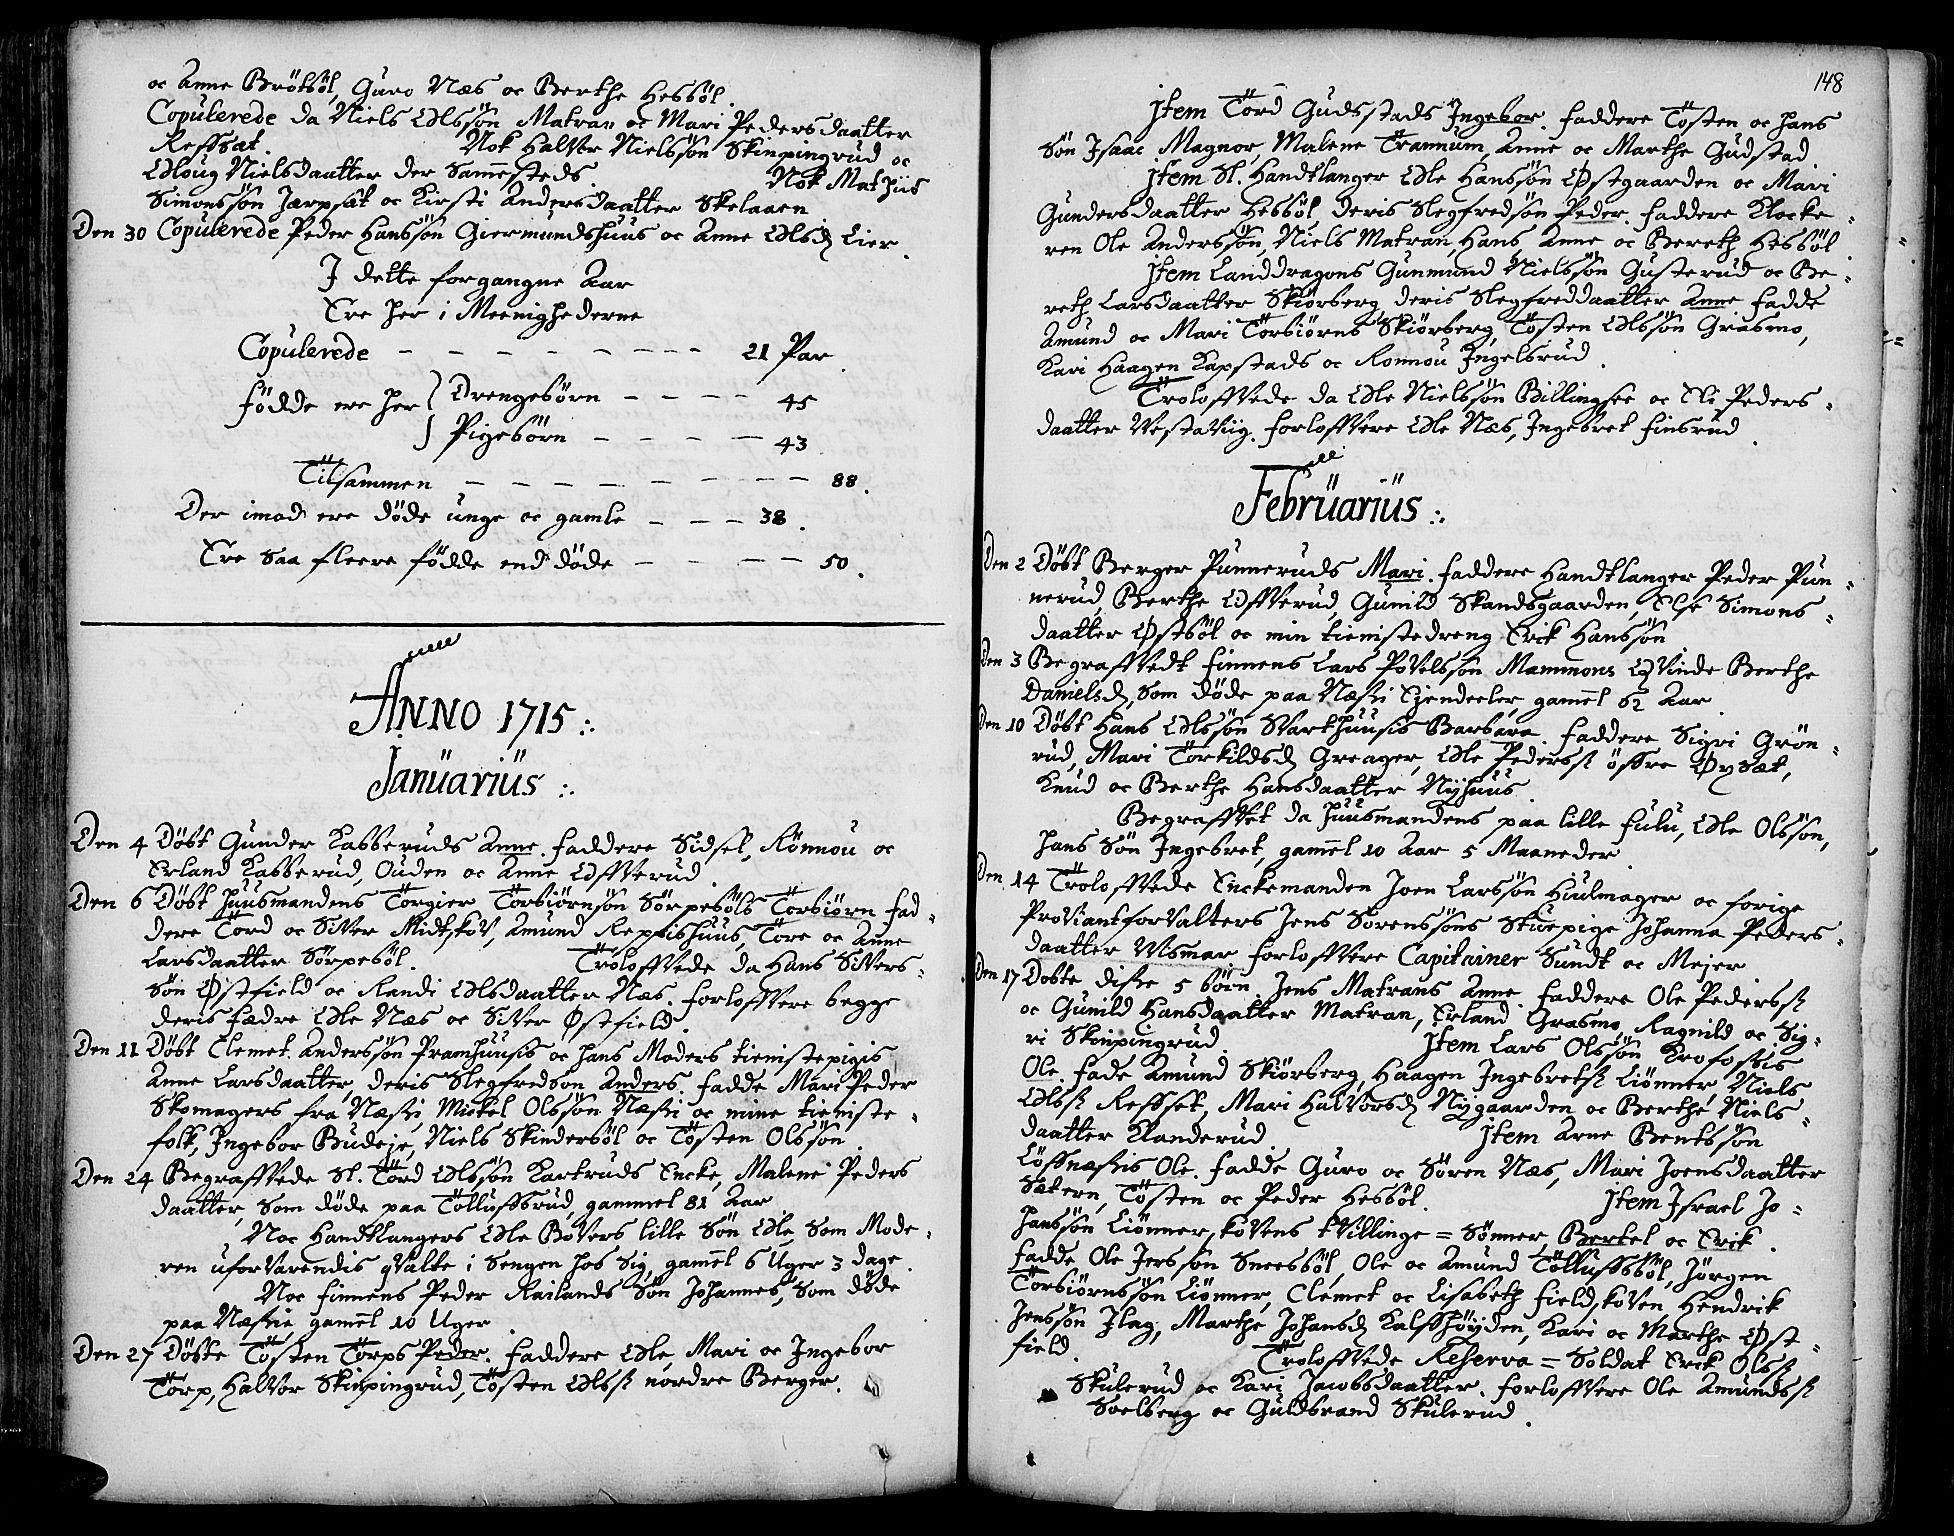 oc Anne Brötböl, Guro Næs oc Berthe Hesböl.
Copulerede da Niels Olssön Matran oc Mari Pedersdaatter
Reffsæt. Nok Halvor Nielssön Skinpingrud oc
Oloug Nielsdaatter der Sammesteds. Nok Mathiis
Simonssön Jærpsæt oc Kirsti Andersdaatter Skelaaen
Den 30 Copulerede Peder Hanssön Giermundshuus oc Anne Olsd. Lier.
I dette forgangne Aar
Ere her i Meenighederne
Copulerede - - - - - - - - 21 Par.
födde ere her } Drengebörn - - - - 45
} Pigebörn - - - - - 43
Tilsammen - - - - - - - - - 88.
Der imod ere döde unge oc gamle - - - 38.
Ere saa fleere födde end döde - - - - - 50.
ANNO 1715:.
Januarius:.
Den 4 Döbt Gunder Kasseruds Anne. faddere Sidsel, Rönnou oc
Erland Kasserud, Ouden oc Anne Offverud.
Den 6 Döbt Huusmandens Törgier Törbiörnsön Sörpeböls Torbiörn fad-
dere Törd oc Siver Midtskov, Amund Reppishuus, Töre oc Anne
Larsdaatter Sörpeböl. Troloffvede da Hans Sivers-
sön Östfield oc Randi Olsdaatter Næs. forloffvere begge
deris fædre Ole Næs oc Siver Östfield.
Den 11 Döbt Clemet Anderssön Pramhuusis oc hans Moders tienistepigis
Anne Larsdaatter, deris Slegfredsön Anders. fadde Mari Peder
Skomagers fra Næssi Mickel Olssön Næssi oc mine tieniste-
folk, Ingebor Budeje, Niels Skinderböl oc Tösten Olssön.
Den 24 Begraffvede Sl. Törd Olssön Kartruds Encke, Malene Peders
daatter, som döde paa Töllussbrud, gammel 81 Aar.
Noc Handtlangers Ole Bövers lille Sön Ole, som Mode-
ren uforvarendis qvalte i Sengen hos sig, gamel 6 Uger 3 dage.
Noc Finnens Peder Railands Sön Johannes, som döde
paa Næssie gamel 10 Uger.
Den 27 Döbte Tösten Törps Peder. faddere Ole, Mari oc Ingebor
Törp, Halvor Skinpingrud, Tösten Olss. nordre Berger.
148
Item Törd Gudsstads Ingebor. faddere Tösten oc hans
Sön Isaac Magnor, Malene Trannum, Anne oc Marthe Gudstad.
Item Sl. Handtlanger Ole Hanssön Östgaarden oc Mari
Gundersdaatter Hesböl, deris Slegfredsön Peder. faddere Klocke-
ren Ole Anderssön, Niels Matran, Hans, Anne oc Bereth Hesböl.
Item Landdragons Gunmund Nielssön Gusterud oc Be-
reth Larsdaatter Skiörberg, deris Slegfreddaatter Anne fadde
Amund oc Mari Törbiörns Skiörberg, Tösten Olssön Grasmo,
Kari Haagen Kapstads oc Ronnou Ingelsrud.
Troloffvede da Ole Nielssön Billingsee oc Eli Peders-
daatter Vestaviig. forloffvere Ole Næs, Ingebret Finsrud.
Februarius:.
Den 2 Döbt Berger Punneruds Mari. faddere Handtlanger Peder Pun-
nerud, Berthe Offverud, Gunild Skandsgaarden, Else Simons-
daatter Östböl oc min tienistedreng Erik Hanssön.
Den 3 Begraffvedt Finnens Lars Povelssön Mammons Qvinde Berthe
Danielsd, som döde paa Næssi Ejendeeler, gamel 62 Aar.
Den 10 Döbt Hans Olssön Svarthuusis Barbara. faddere Sigri Grön-
rud, Mari Törkildsd. Greager, Ole Pederss. össre Öysæt,
Knud oc Berthe Hansdaatter Nyhuus.
Begraffvet da huusmandens paa lille fulu, Ole Olssön,
hans Sön Ingebret, gamel 10 Aar 5 Maaneder.
Den 14 Troloffvede Enckemanden Joen Larssön Hiulmager oc forige
Proviantforvalters Jens Sörenssöns Stuepige Johanna Peders-
daatter Wismar. forloffvere Capitainer Sundt oc Mejer
Den 17 Döbte disse 5 börn. Jens Matrans Anne. faddere Ole Pederss.
oc Gunild Hansdaatter Matran, Erland Grasmo, Ragnild oc Sig-
ri Skinpingrud. Item Lars Olssön Krofossis
Ole. fadde Amund Skiörberg, Haagen Ingebretss. Liönner, Niels
Olss. Reffset, Mari Halvorsd. Nygaarden oc Berthe Niels-
daatter Klanderud. Item Arne Bentssön
Lössnæssis Ole. fadde Guro oc Sören Næs, Mari Joensdaatter
Sætern, Tösten oc Peder Hesböl. Item Israel Jo-
hanssön Liönner,kovens tvillinge = Sönner, Bertel oc Erik.
Fadde Ole Jenssön Sneesböl, Ole oc Amund Töllussböl, Jörgen
Törbiörnssön Liönner, Clemet oc Lisabeth Fieldskoven, Hendrik
Jenssön Ilag, Marthe Johansd. Kalsshöyden, Kari oc Marthe Öst-
field. Troloffvede Reserva = Soldat Erik Olss.
Skulerud oc Kari Jacobsdaatter. forloffvere Ole Amundss.
Soelberg oc Guldbrand Skulerud.